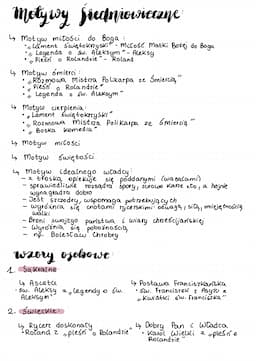 Motywy Średniowieczne:
↳ Motyw miłości do Boga:
• „Lament Świętokrzyski” - miłość Matki Bożej do Boga
• „Legenda o św. Aleksym” - Aleksy
• „Pieśń o Rolandzie” - Roland
↳ Motyw śmierci:
• „Rozmowa Mistrza Polikarpa ze Śmiercią”
• „Pieśń o Rolandzie”
• „Legenda o św. Aleksym”
↳ Motyw cierpienia:
• „Lament świętokrzyski”
• „Rozmowa Mistrza Polikarpa ze śmiercią”
• „Boska komedia”
↳ Motyw miłości
↳ Motyw świętości
↳ Motyw idealnego władcy:
- z troską opiekuje się poddanymi (wasalami)
- sprawiedliwie rozsądza spory, surowo karze zło, a hojnie
wynagradza dobro
- Jest szczodry, wspomaga potrzebujących
- wyróżnia się cnotami rycerskimi: odwagą, siłą, umiejętnością
walki
- Broni swojego państwa i wiary chrześcijańskiej
- Wyróżnia się pobożnością
- np. Bolesław Chrobry
Wzory osobowe:
1. Sakralne
↳ Asceta
„św. Aleksy” z „Legendy o św.
Aleksym”
↳ Postawa Franciszkańska
„św. Franciszek z Asyżu” z
„Kwiatki św. Franciszka”
2. Świeckie
↳ Rycerz doskonały
„Roland” z „pieśni o Rolandzie”
↳ Dobry Pan i Władca
„Karol Wielki” z „pieśni o
Rolandzie”